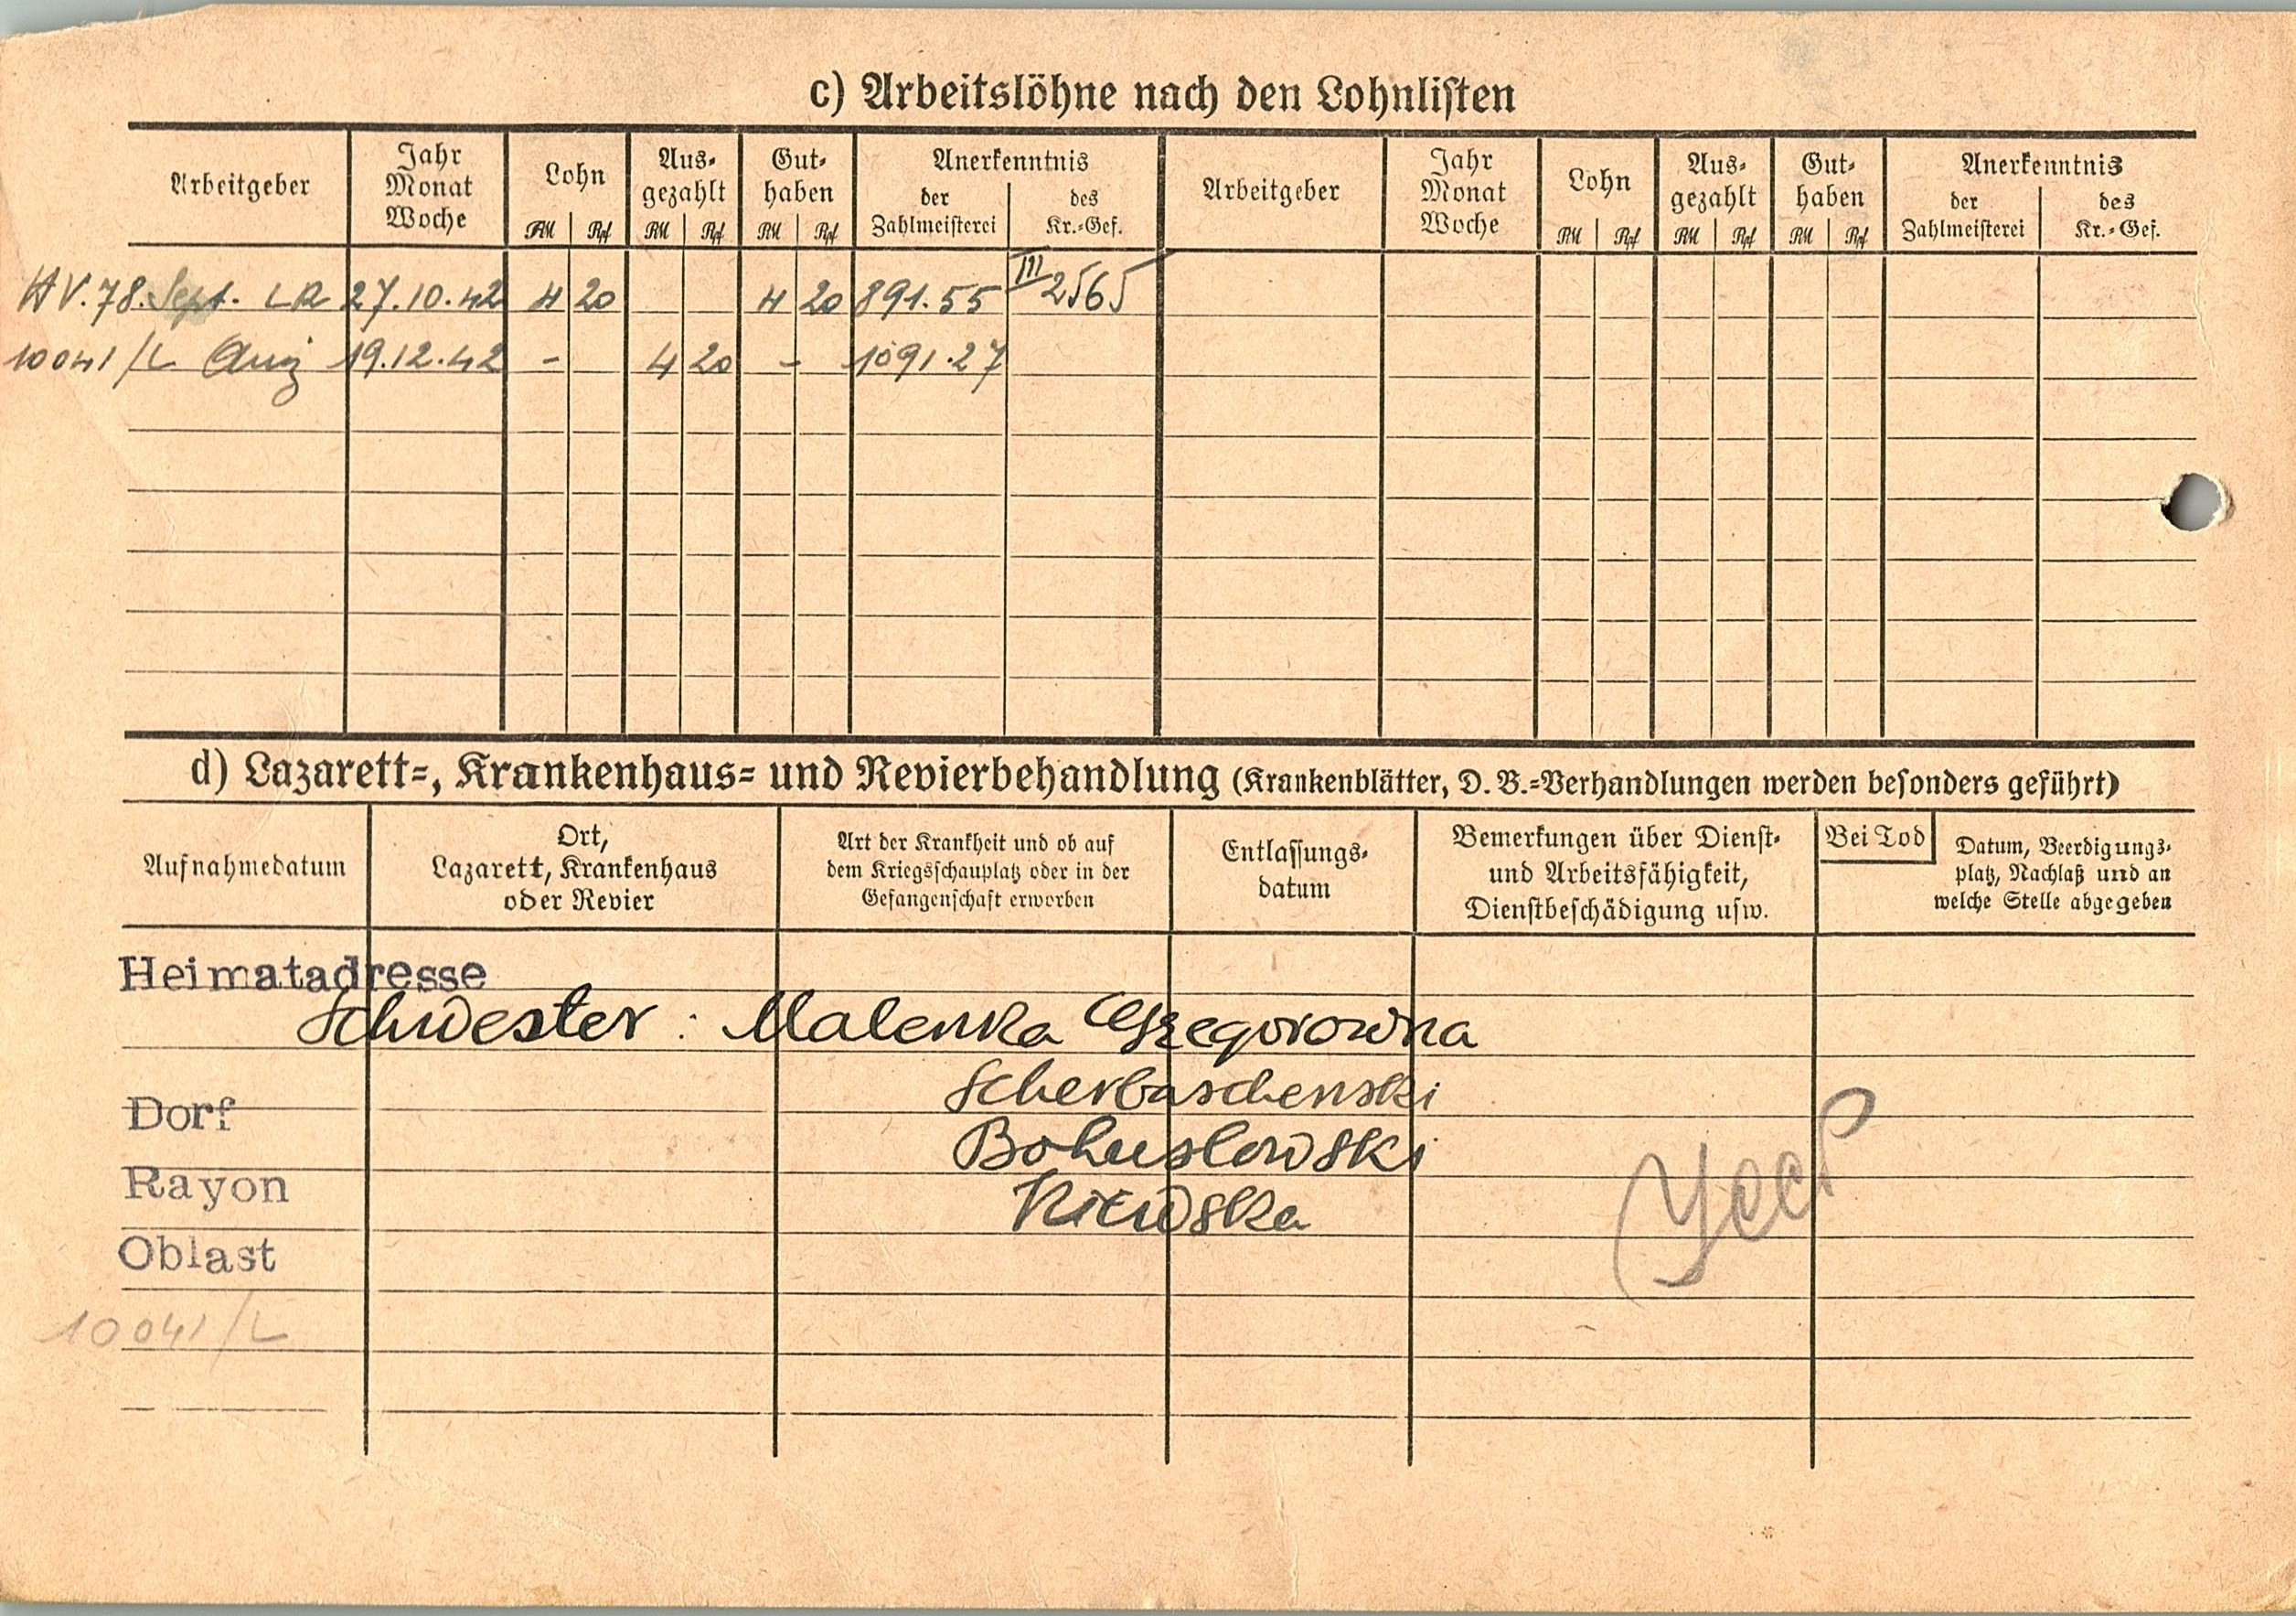 c) Arbeitslöhne nach den Lohnlisten
Arbeitgeber Jahr Monat Woche Lohn Aus- gezahlt Gut- haben Anerkenntnis Arbeitgeber Jahr Monat Woche Lohn Aus- gezahlt Gut- haben Anerkenntnis
RM Rpf RM Rpf RM Rpf der Zahlmeisterei des Kr.-Gef. RM Rpf RM Rpf RM Rpf der Zahlmeisterei des Kr.-Gef.
HV. 78. Sept. LR 27.10.42 4 20 4 20 891.55 III 2565
10041/L 19.12.42 - 4 20 - 1091.27
d) Lazarett-, Krankenhaus- und Revierbehandlung (Krankenblätter, D. B.-Verhandlungen werden besonders geführt)
Aufnahmedatum
Ort,
Lazarett, Krankenhaus
oder Revier
Art der Krankheit und ob auf
dem Kriegsschauplatz oder in der
Gefangenschaft erworben
Entlassungs-
datum
Bemerkungen über Dienst-
und Arbeitsfähigkeit,
Dienstbeschädigung usw.
Bei Tod
Datum, Beerdigungs-
platz, Nachlaß und an
welche Stelle abgegeben
Heimatadresse
Schwester : Malenka Grzegorowna
Scherbaschenski
Dorf Bohuslowski
Rayon Kiewska
Oblast
УССР
10041/L